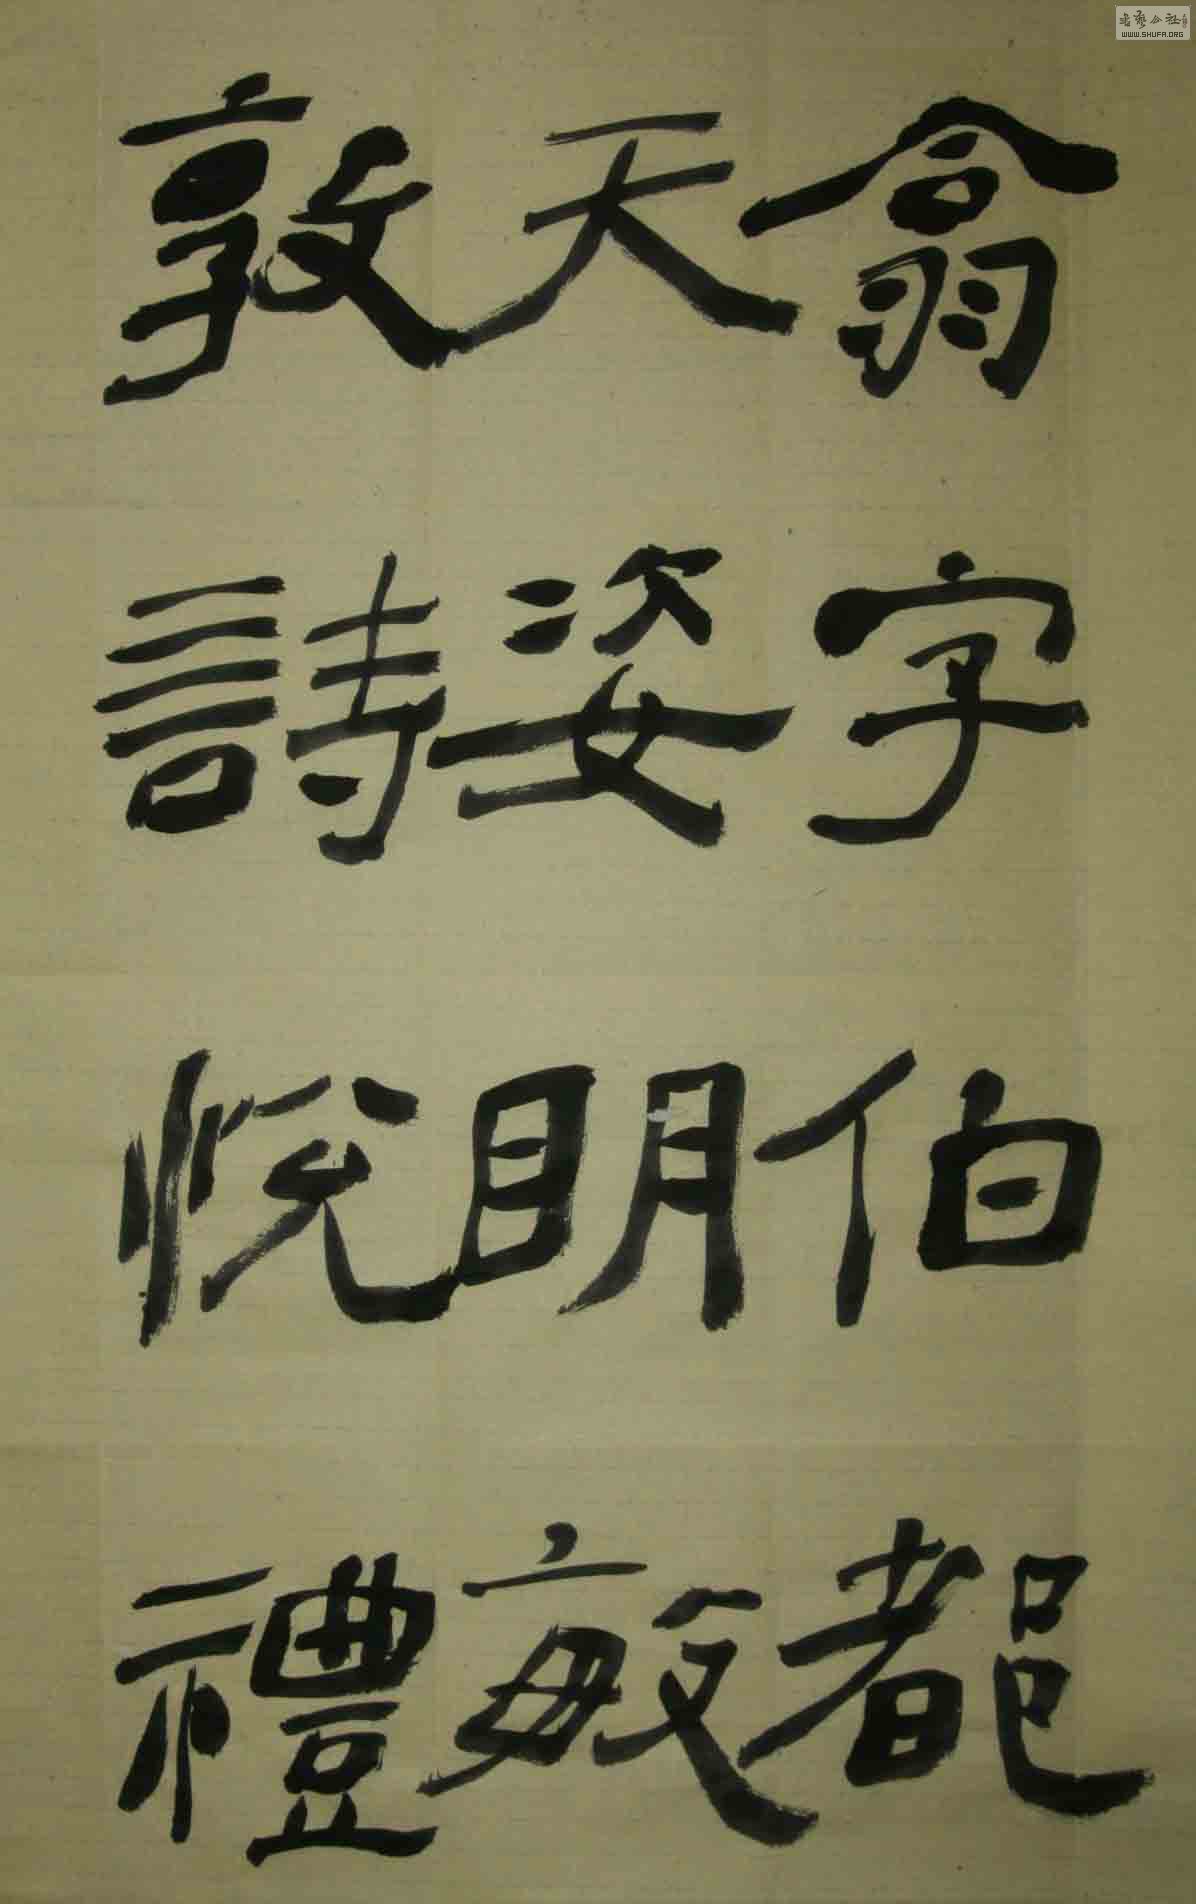 翕字伯都
天姿明敏
敦詩悅禮
WWW.SHUFA.ORG